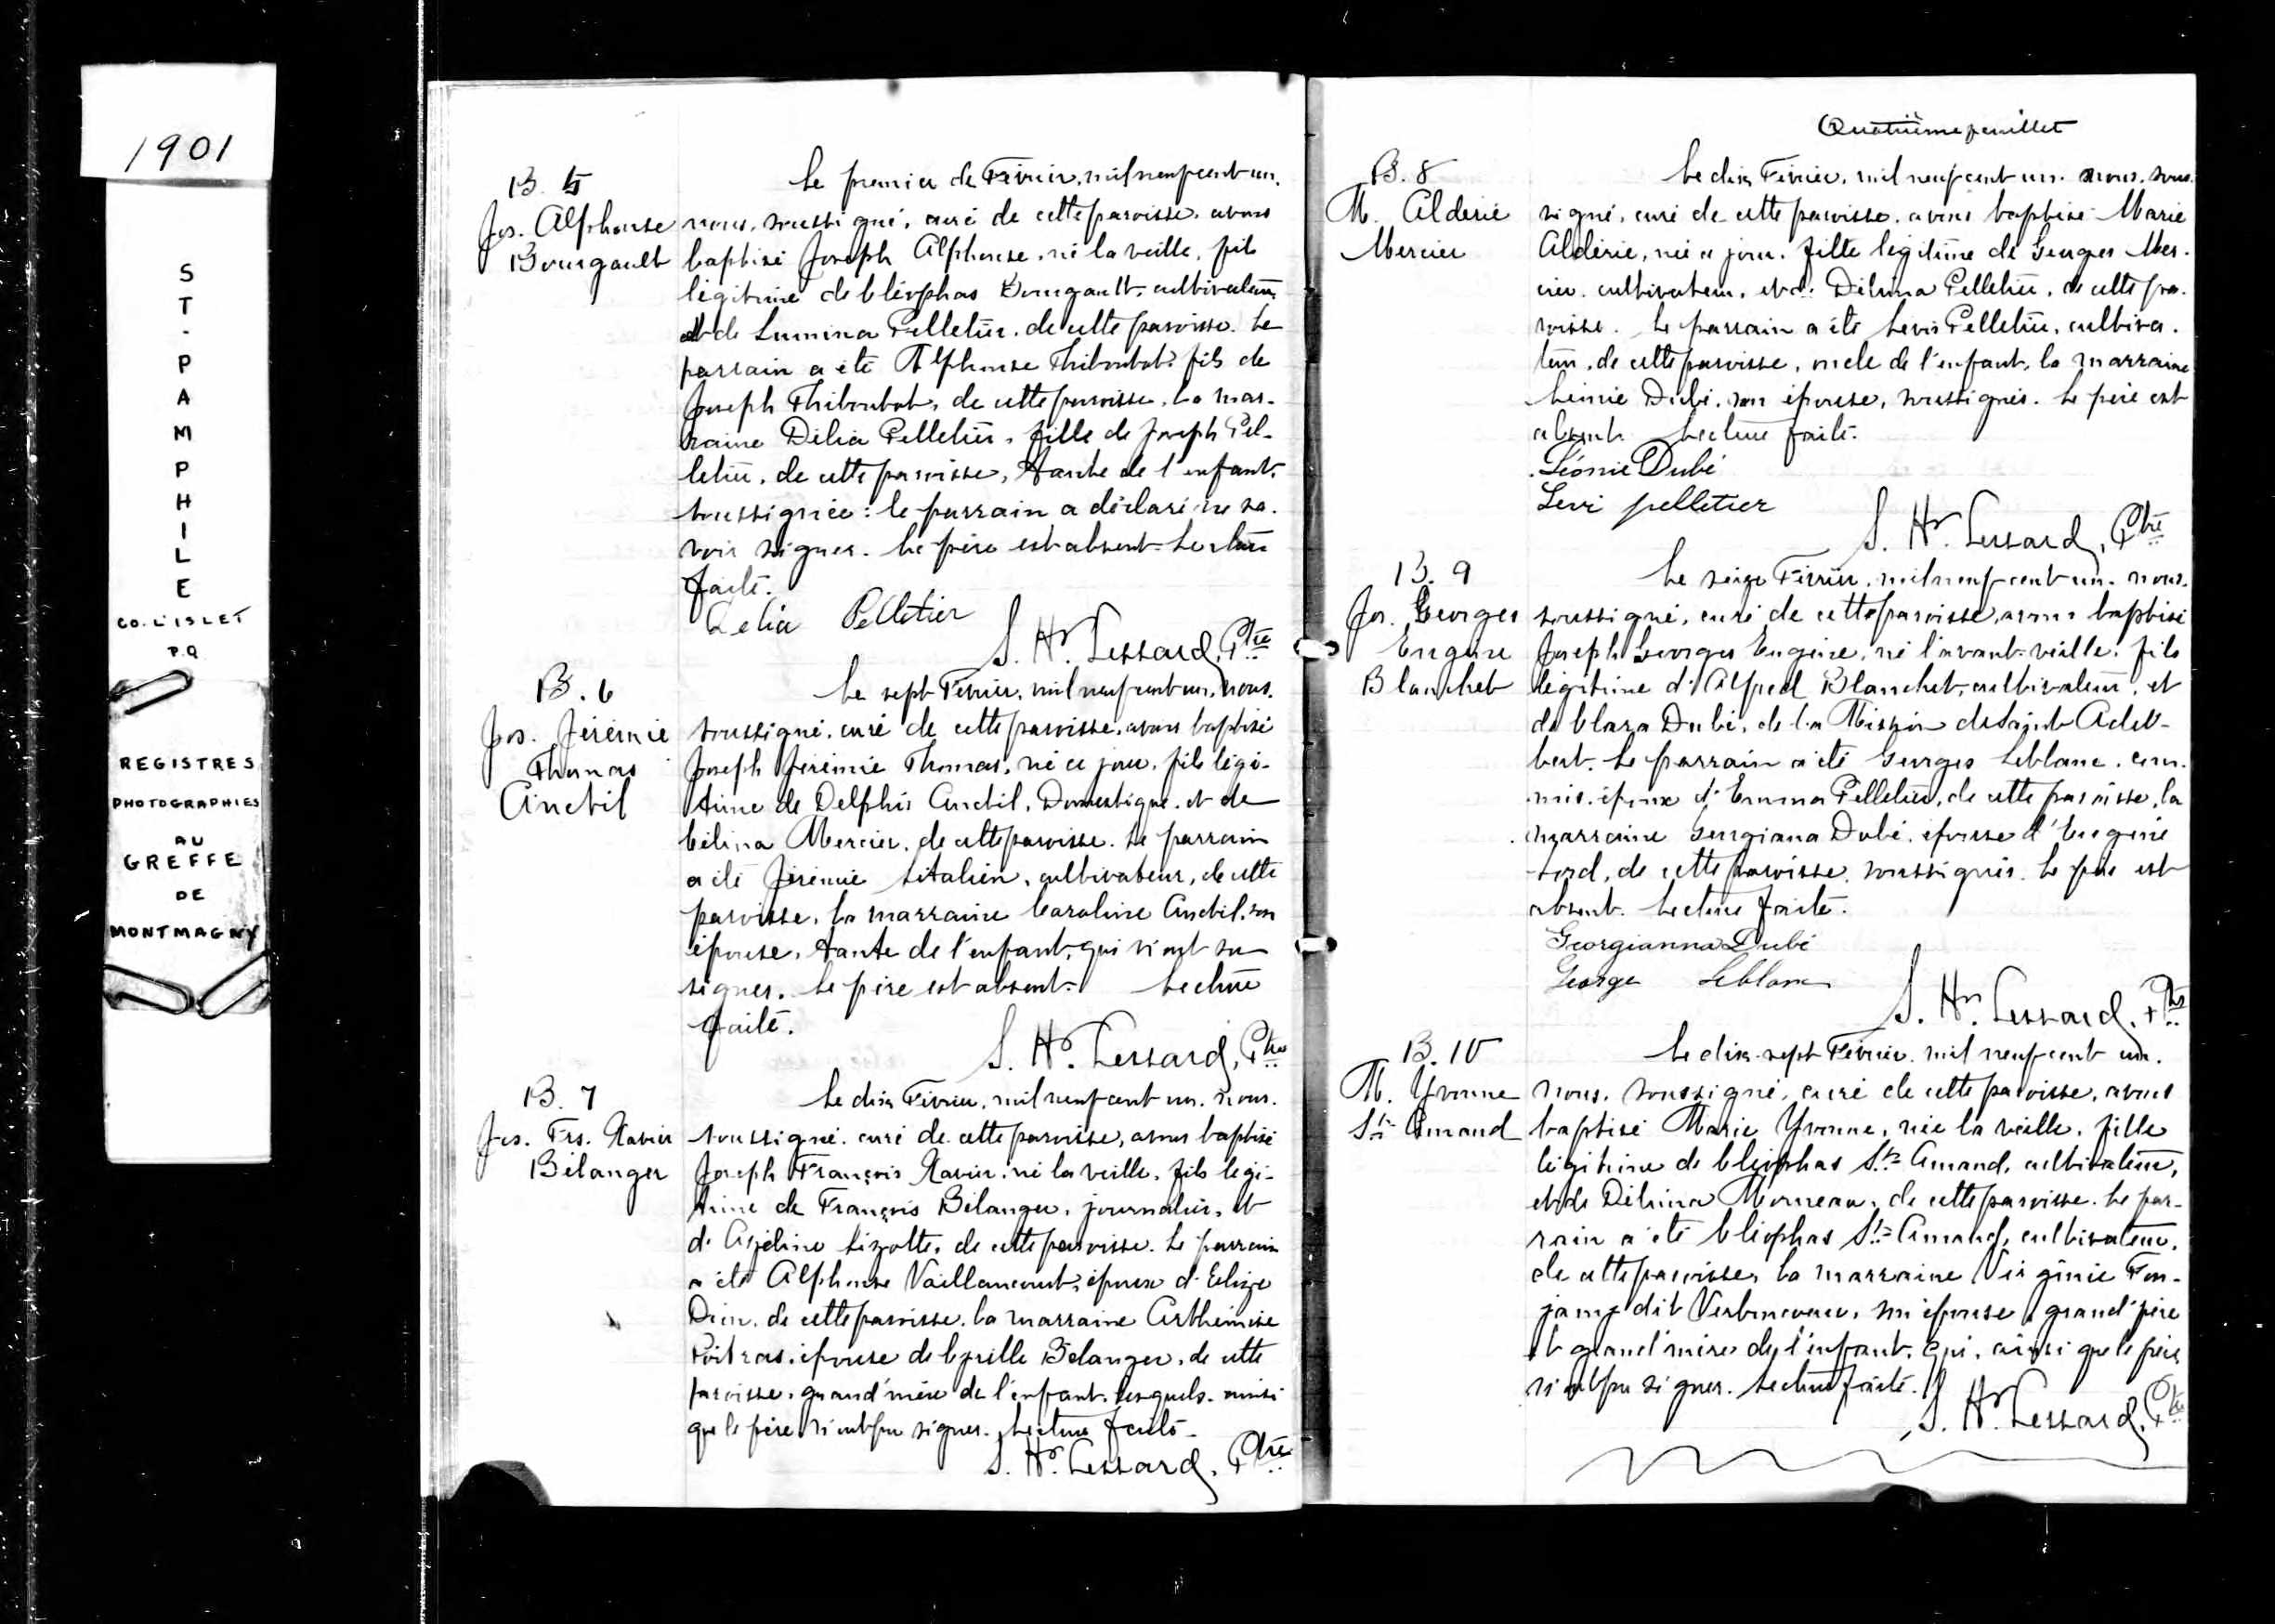 1901
ST-PAMPHILE
CO. L'ISLET
P.Q
REGISTRES
PHOTOGRAPHIES
AU
GREFFE
DE
MONTMAGNY
B. 5
Jos. Alphonse
Bourgault
Le premier de Février, mil neuf cent un,
nous, soussigné, curé de cette paroisse, avons
baptisé Joseph Alphonse, né la veille, fils
légitime de Cléophas Bourgault, cultivateur,
et de Lumina Pelletier, de cette paroisse. Le
parrain a été Alphonse Thiboutot, fils de
Joseph Thiboutot, de cette paroisse, la mar-
raine Délia Pelletier, fille de Joseph Pel-
letier, de cette paroisse, tante de l'enfant,
soussignée: le parrain a déclaré ne sa-
voir signer. Le père est absent. Lecture
faite.
Delia Pelletier
S. Hr. Lessard, Ptre
B. 6
Jos. Jérémie
Thomas
Anctil
Le sept Février, mil neuf cent un, nous,
soussigné, curé de cette paroisse, avons baptisé
Joseph Jérémie Thomas, né ce jour, fils légi-
time de Delphis Anctil, Domestique, et de
Célina Mercier, de cette paroisse. Le parrain
a été Jérémie Litalien, cultivateur, de cette
paroisse, la marraine Caroline Anctil, son
épouse, tante de l'enfant, qui n'ont su
signer. Le père est absent. Lecture
faite.
S. Hr. Lessard, Ptre
B. 7
Jos. Frs. Xavier
Bélanger
Le dix Février, mil neuf cent un, nous,
soussigné, curé de cette paroisse, avons baptisé
Joseph François Xavier, né la veille, fils légi-
time de François Bélanger, journalier, et
de Azéline Lizotte, de cette paroisse. Le parrain
a été Alphonse Vaillancourt, époux d'Elize
de cette paroisse, la marraine Arthémise
Poitras, épouse de Cyrille Bélanger, de cette
paroisse, grand'mère de l'enfant, lesquels, ainsi
que le père n'ont pu signer. Lecture faite.
S. Hr. Lessard, Ptre
Quatrième feuillet
B. 8
M. Aldérie
Mercier
Le dix Février, mil neuf cent un, nous, sous-
signé, curé de cette paroisse, avons baptisé Marie
Aldérie, née ce jour, fille légitime de Georges Mer-
cier, cultivateur, et de Délima Pelletier, de cette pa-
roisse. Le parrain a été Levis Pelletier, cultiva-
teur, de cette paroisse, oncle de l'enfant, la marraine
Léonie Dubé, son épouse, soussignés. Le père est
absent. Lecture faite.
Léonie Dubé
Levi pelletier
S. Hr. Lessard, Ptre
B. 9
Jos. Georges
Eugène
Blanchet
Le seize Février, mil neuf cent un, nous,
soussigné, curé de cette paroisse, avons baptisé
Joseph Georges Eugène, né l'avant-veille, fils
légitime d'Alfred Blanchet, cultivateur, et
de Clara Dubé, de la Mission de Saint Adel-
bert. Le parrain a été Georges Leblanc, com-
mis, époux d'Emma Pelletier, de cette paroisse, la
marraine Georgiana Dubé, épouse d'Eugène
de cette paroisse, soussignés. Le père est
absent. Lecture faite.
Georgianna Dubé
George Leblanc
S. Hr. Lessard, Ptre
B. 10
M. Yvonne
St. Amand
Le dix-sept Février, mil neuf cent un,
nous, soussigné, curé de cette paroisse, avons
baptisé Marie Yvonne, née la veille, fille
légitime de Cléophas St. Amand, cultivateur,
et de Délima Morneau, de cette paroisse. Le par-
rain a été Cléophas St. Amand, cultivateur,
de cette paroisse, la marraine Virginie Fon-
jamy dit Verboncoeur, son épouse, grand'père
et grand'mère de l'enfant, qui, ainsi que le père,
n'ont pu signer. Lecture faite.
S. Hr. Lessard, Ptre